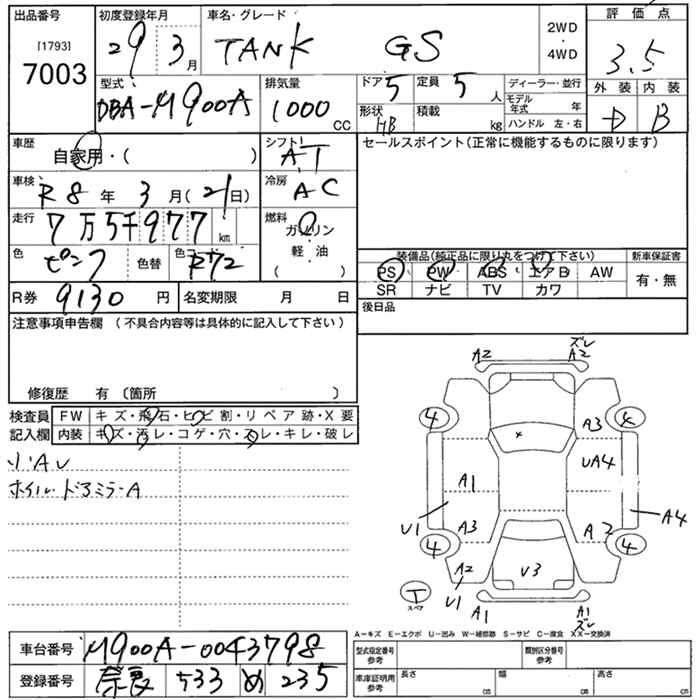 出品番号 [1793] 7003
初度登録年月 29 3月
車名・グレード TANK GS
2WD・4WD
評価点 3.5
型式 DBA-M900A
排気量 1000 CC
ドア 5 定員 5 人
形状 HB 積載 kg
ディーラー・並行
モデル年式 年
ハンドル 左・右
外装 D 内装 B
車歴 自家用・( )
シフト AT
車検 R8年 3月(21日)
冷房 AC
走行 7万5千977 km
燃料 ガソリン 軽・油 ( )
色 ピンク 色替 色コード R72
R券 9130円 名変期限 月 日
セールスポイント(正常に機能するものに限ります)
装備品(純正品に限り丸をつけて下さい) 新車保証書
PS PW ABS エアB AW 有・無
SR ナビ TV カワ
後日品
注意事項申告欄 (不具合内容等は具体的に記入して下さい)
修復歴 有 〔箇所 〕
検査員記入欄
FW キズ・飛石・ヒビ割・リペア跡・X要
内装 キズ・汚レ・コゲ・穴・スレ・キレ・破レ
小AU
ホイル・ドアミラーA
A2 ズレ A2
4 4
A3
UA4
A1
U1 A3 A2 A4
4 4
A2 U3
U1
T スペア
A1 A1 ズレ
A-キズ E-エクボ U-凹み W-補修跡 S-サビ C-腐食 XX-交換済
車台番号 M900A-0043798
登録番号 奈良 533 め 235
型式指定番号 参考 類別区分番号 参考
車庫証明用 参考 長さ cm 幅 cm 高さ cm